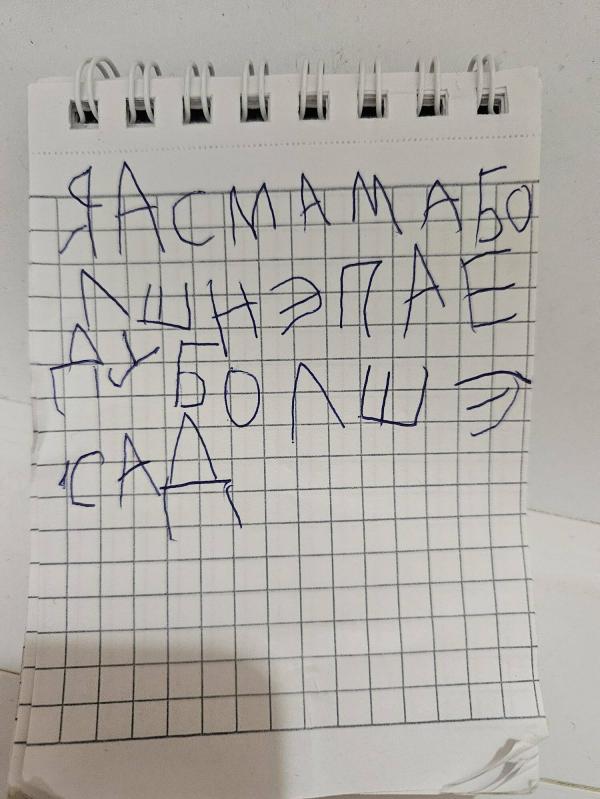 ЯАСМАМАБО
ЛШНЭПАЕ
ДУБОЛШЭ
САД